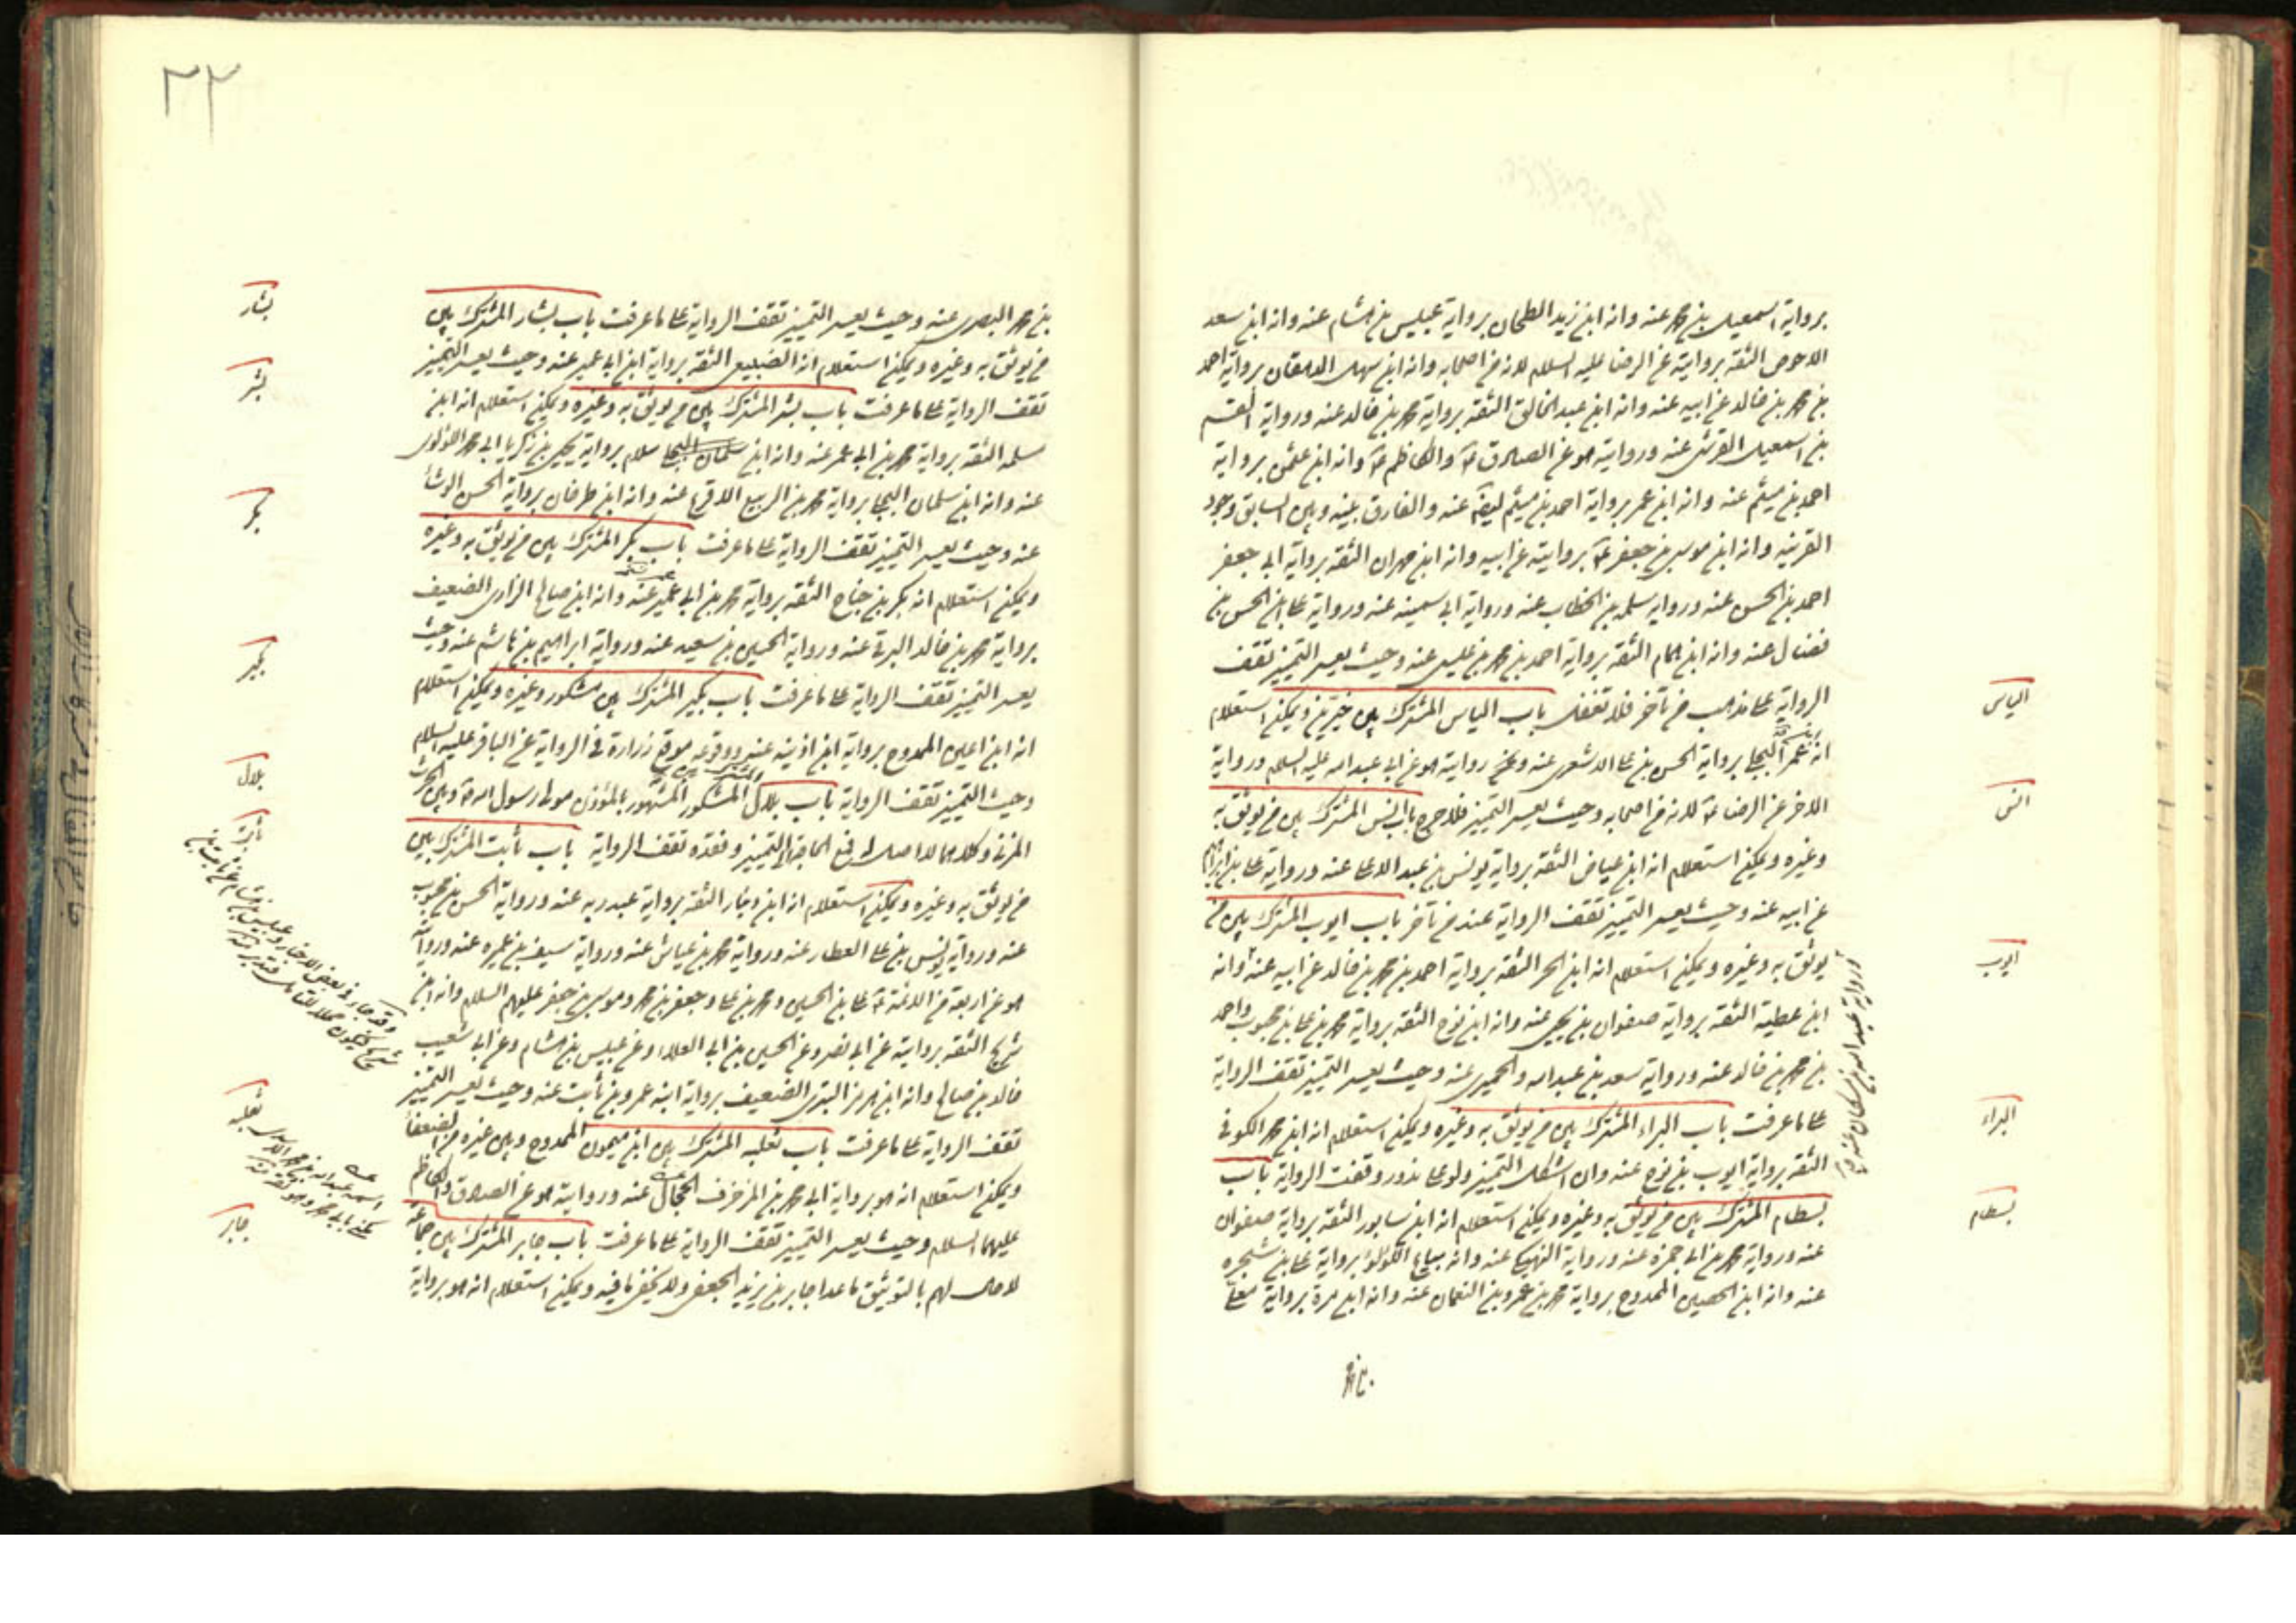 برواية اسمعيل بن محمد عنه وانه ابن زيد الطحان برواية عبيس بن هشام عنه وانه ابن سعد
الاحوص الثقة بروايته عن الرضا عليه السلام لانه من اصحابه وانه ابن سهل الدهقان برواية احمد
بن محمد بن خالد عن ابيه عنه وانه ابن عبد الخالق الثقة برواية محمد بن خالد عنه ورواية القسم
بن اسمعيل القرشى عنه وروايته هو عن الصادق ع والكاظم ع وانه ابن عثمن برواية
احمد بن ميثم عنه وانه ابن عمر برواية احمد بن ميثم ايضا عنه والفارق بينه وبين السابق وجود
القرينه وانه ابن موسى بن جعفر ع بروايته عن ابيه وانه ابن مهران الثقه برواية ابى جعفر
احمد بن الحسن عنه ورواية سلمه بن الخطاب عنه ورواية ابى سمينه عنه ورواية على بن الحسن بن
فضال عنه وانه ابن همام الثقه برواية احمد بن محمد بن عيسى عنه وحيث يعسر التميز تقف
الرواية على مذهب من تأخر فلا تغفل باب الياس المشترك بين خيرين ويمكن استعلام
انه بن عمر البجلى برواية الحسن بن على الاشعرى عنه وعن روايته هو عن ابى عبد الله عليه السلم ورواية
الاخر عن الرضا ع لانه من اصحابه وحيث يعسر التميز فلا حرج باب انس المشترك بين من يوثق به
وغيره ويمكن استعلام انه ابن عياض الثقه برواية يونس بن عبد الاعلى عنه ورواية على بن ابراهيم
عن ابيه عنه وحيث يعسر التميز تقف الرواية عند من تأخر باب ايوب المشترك بين من
يوثق به وغيره ويمكن استعلام انه ابن الحر الثقه برواية احمد بن محمد بن خالد عن ابيه عنه وانه
ابن عطية الثقه برواية صفوان بن يحيى عنه وانه ابن نوح الثقه برواية محمد بن على بن محبوب واحمد
بن محمد بن خالد عنه ورواية سعد بن عبد الله والحميرى عنه وحيث يعسر التميز تقف الرواية
على ما عرفت باب البراء المشترك بين من يوثق به وغيره ويمكن استعلام انه ابن محمد الكوفى
الثقه برواية ايوب بن نوح عنه وان اشكل التميز ولو على ندور وقفت الرواية باب
بسطام المشترك بين من يوثق به وغيره ويمكن استعلام انه ابن سابور الثقه برواية صفوان
عنه ورواية محمد بن ابى حمزه عنه ورواية النهيكى عنه وانه بياع اللؤلؤ برواية على بن شجره
عنه وانه ابن الحصين الممدوح برواية محمد بن عمرو بن النعمان عنه وانه ابن مرة برواية معلى
الياس
انس
ايوب
البراء
بسطام
بن محمد
٣٣
بن محمد البصرى عنه وحيث يعسر التميز تقف الرواية على ما عرفت باب بشار المشترك بين
من يوثق به وغيره ويمكن استعلام انه الضبيعى الثقه برواية ابن ابى عمير عنه وحيث يعسر التميز
تقف الرواية على ما عرفت باب بشر المشترك بين من يوثق به وغيره ويمكن استعلام انه ابن
سلمه الثقه برواية محمد بن ابى عمر عنه وانه ابن سلام برواية يحيى بن زكريا ابى محمد اللؤلؤى
عنه وانه ابن سلمان البجلى برواية محمد بن الربيع الاقرع عنه وانه ابن طرخان برواية الحسن الوشاء
عنه وحيث يعسر التميز تقف الرواية على ما عرفت باب بكر المشترك بين من يوثق به وغيره
ويمكن استعلام انه بكر بن جناح الثقه برواية محمد بن ابى عمير عنه وانه ابن صالح الرازى الضعيف
برواية محمد بن خالد البرقى عنه ورواية الحسين بن سعيد عنه ورواية ابراهيم بن هاشم عنه وحيث
يعسر التميز تقف الرواية على ما عرفت باب بكير المشترك بين مشكور وغيره ويمكن استعلام
انه ابن اعين الممدوح برواية ابن اذينه عنه ووقوعه موقع زرارة فى الرواية عن الباقر عليه السلام
وحيث التميز تقف الرواية باب بلال المشكور المشهور بالمؤذن مولى رسول الله ص وبين الحرث
المزنى وكلاهما لا اصل له رفع الحاجة الى التميز وفقده تقف الرواية باب ثابت المشترك بين
من يوثق به وغيره ويمكن استعلام انه ابن دينار الثقه برواية عبد ربه عنه ورواية الحسن بن محبوب
عنه ورواية يونس بن على العطار عنه ورواية محمد بن عياش عنه ورواية سيف بن عميره عنه ورواية
هو عن اربعة من الائمة ع على بن الحسين ومحمد بن على وجعفر بن محمد وموسى بن جعفر عليهم السلام وانه ابن
شريح الثقه بروايته عن ابى بصير وعن الحسين بن ابى العلاء وعن عبيس بن هشام وعن ابى شعيب
خالد بن صالح وانه ابن هرمز البترى الضعيف برواية ابنه عمرو بن ثابت عنه وحيث يعسر التميز
تقف الرواية على ما عرفت باب ثعلبه المشترك بين ابن ميمون الممدوح وبين غيره من الضعفاء
ويمكن استعلام انه هو برواية ابى محمد بن المزخرف الحجال عنه وروايته هو عن الصادق والكاظم
عليهما السلام وحيث يعسر التميز تقف الرواية على ما عرفت باب جابر المشترك بين جماعة
لا حال لهم بالتوثيق ما عدا جابر بن يزيد الجعفى ولا يخفى ما فيه ويمكن استعلام انه هو برواية
بشار
بشر
بكر
بكير
بلال
ثابت
ثعلبه
جابر